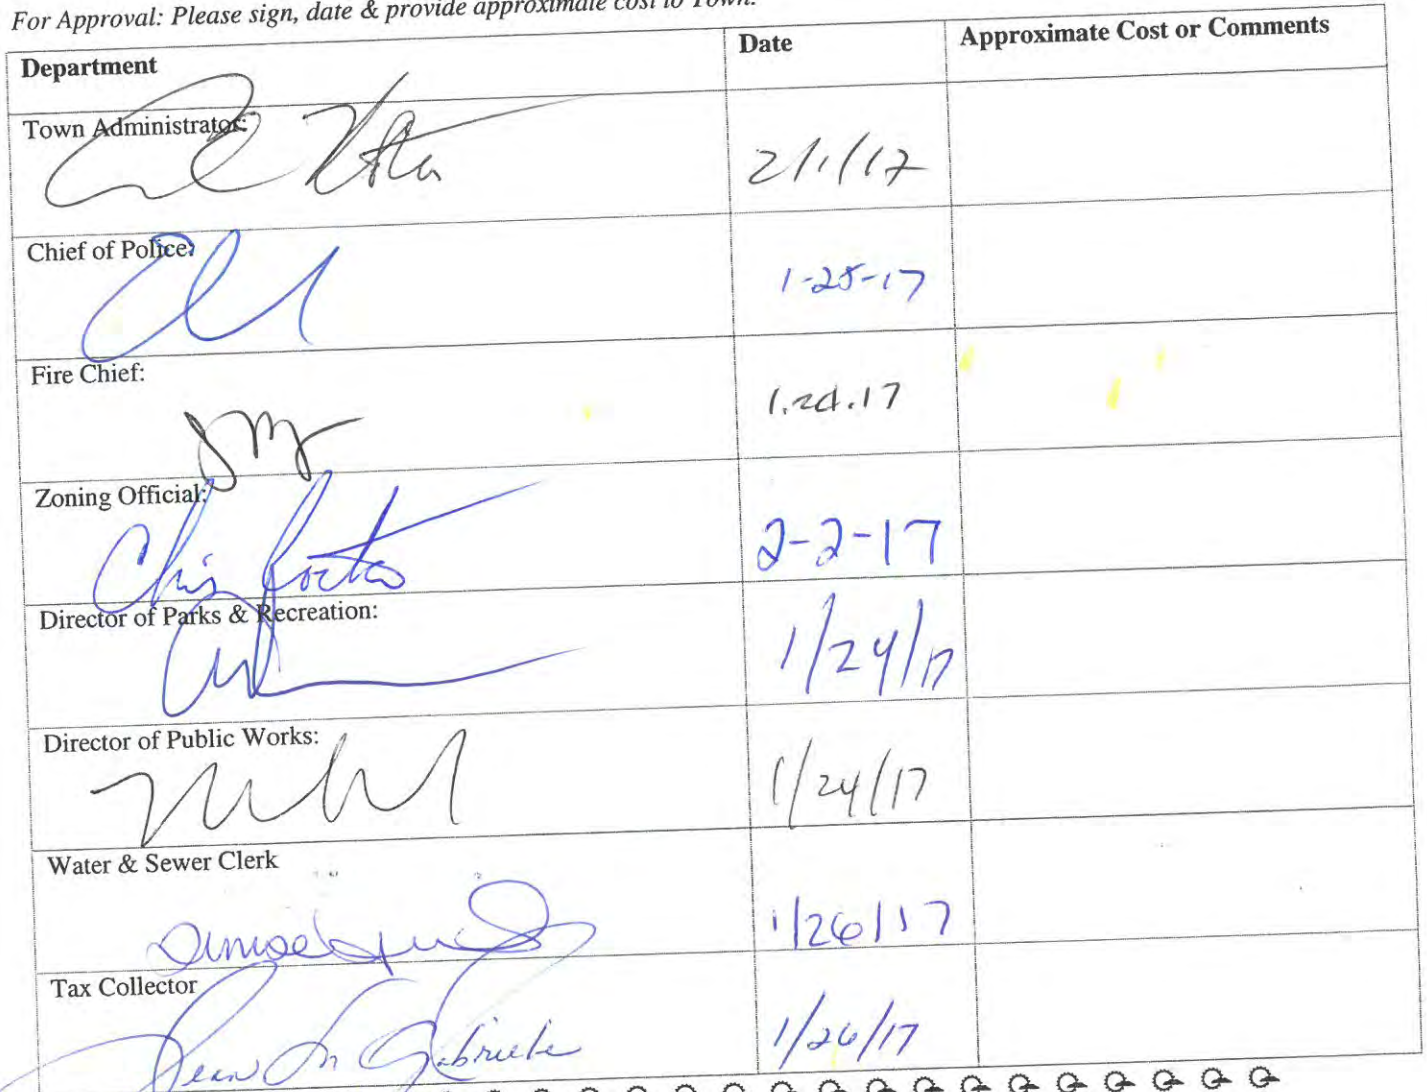 For Approval: Please sign, date & provide approximate cost to Town.
Department Date Approximate Cost or Comments
Town Administrator: 2/1/17
Chief of Police: 1-25-17
Fire Chief: 1.24.17
Zoning Official: Chis 2-2-17
Director of Parks & Recreation: 1/24/17
Director of Public Works: 1/24/17
Water & Sewer Clerk 1/26/17
Tax Collector Jean M Gabriele 1/26/17